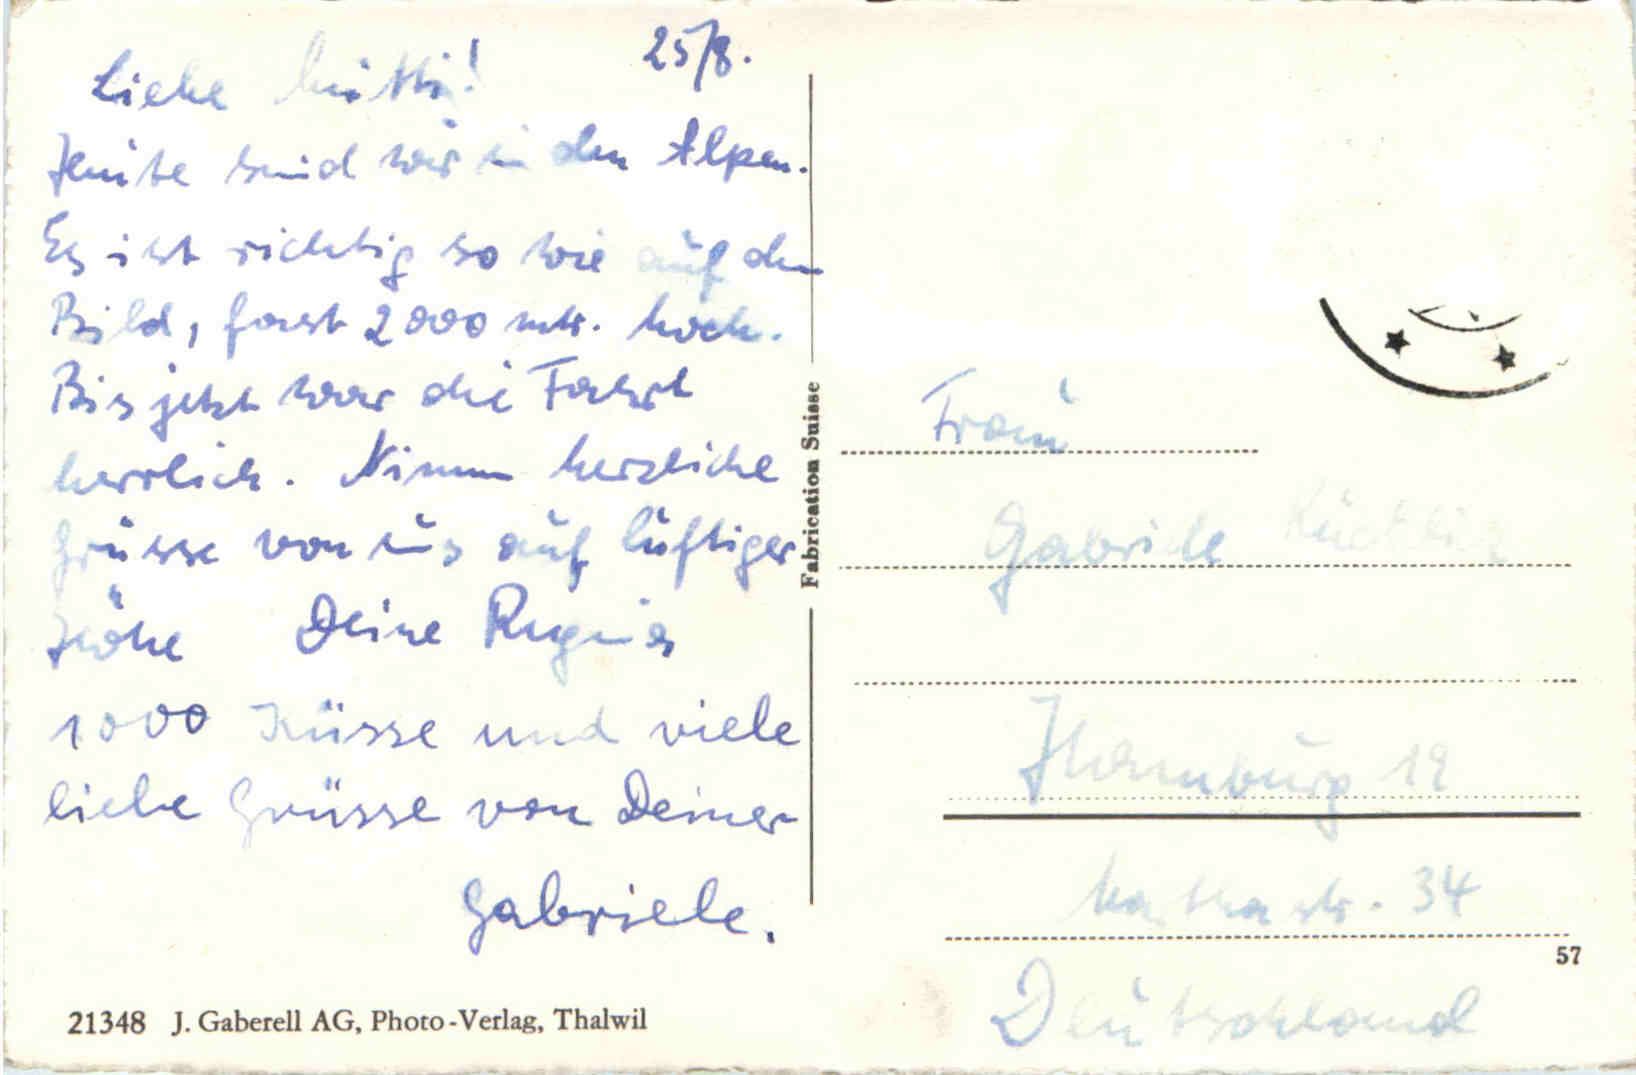 25/8.
Liebe Mutti!
Heute sind wir in den Alpen.
Es ist richtig so wie auf dem
Bild, fast 2000 mtr. hoch.
Bis jetzt war die Fahrt
herrlich. Nimm herzliche
Grüsse von uns auf luftiger
Höhe Deine Regina
1000 Küsse und viele
liebe Grüsse von Deiner
Gabriele.
21348 J. Gaberell AG, Photo-Verlag, Thalwil
Fabrication Suisse
Frau
Gabriele
Hamburg 19
str. 34
57
Deutschland